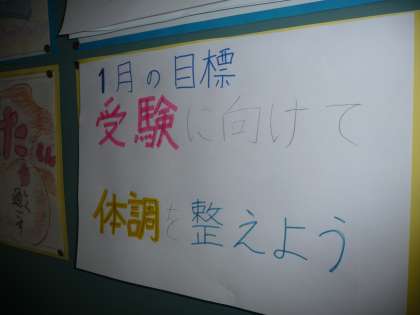 1月の目標
受験に向けて
体調を整えよう